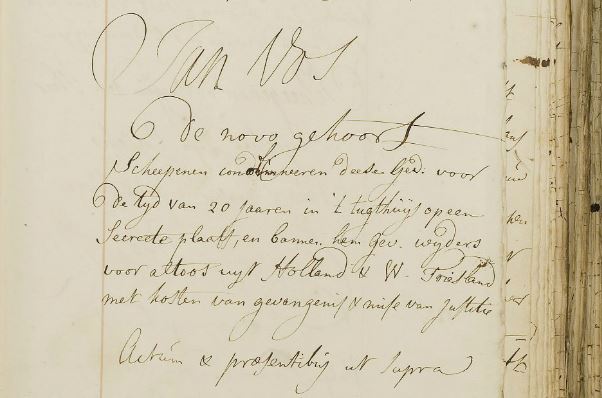 Jan Vos
De novo gehoort
Scheepenen condemneeren deese Gev. voor
De tijd van 20 jaaren in 't tugthuijs op een
Secreete plaats, en bannen hem Gev. wijders
voor altoos uijt Holland & W. Friesland
met kosten van gevangenis & mise van Justitie
Actum & praesentibus ut Supra